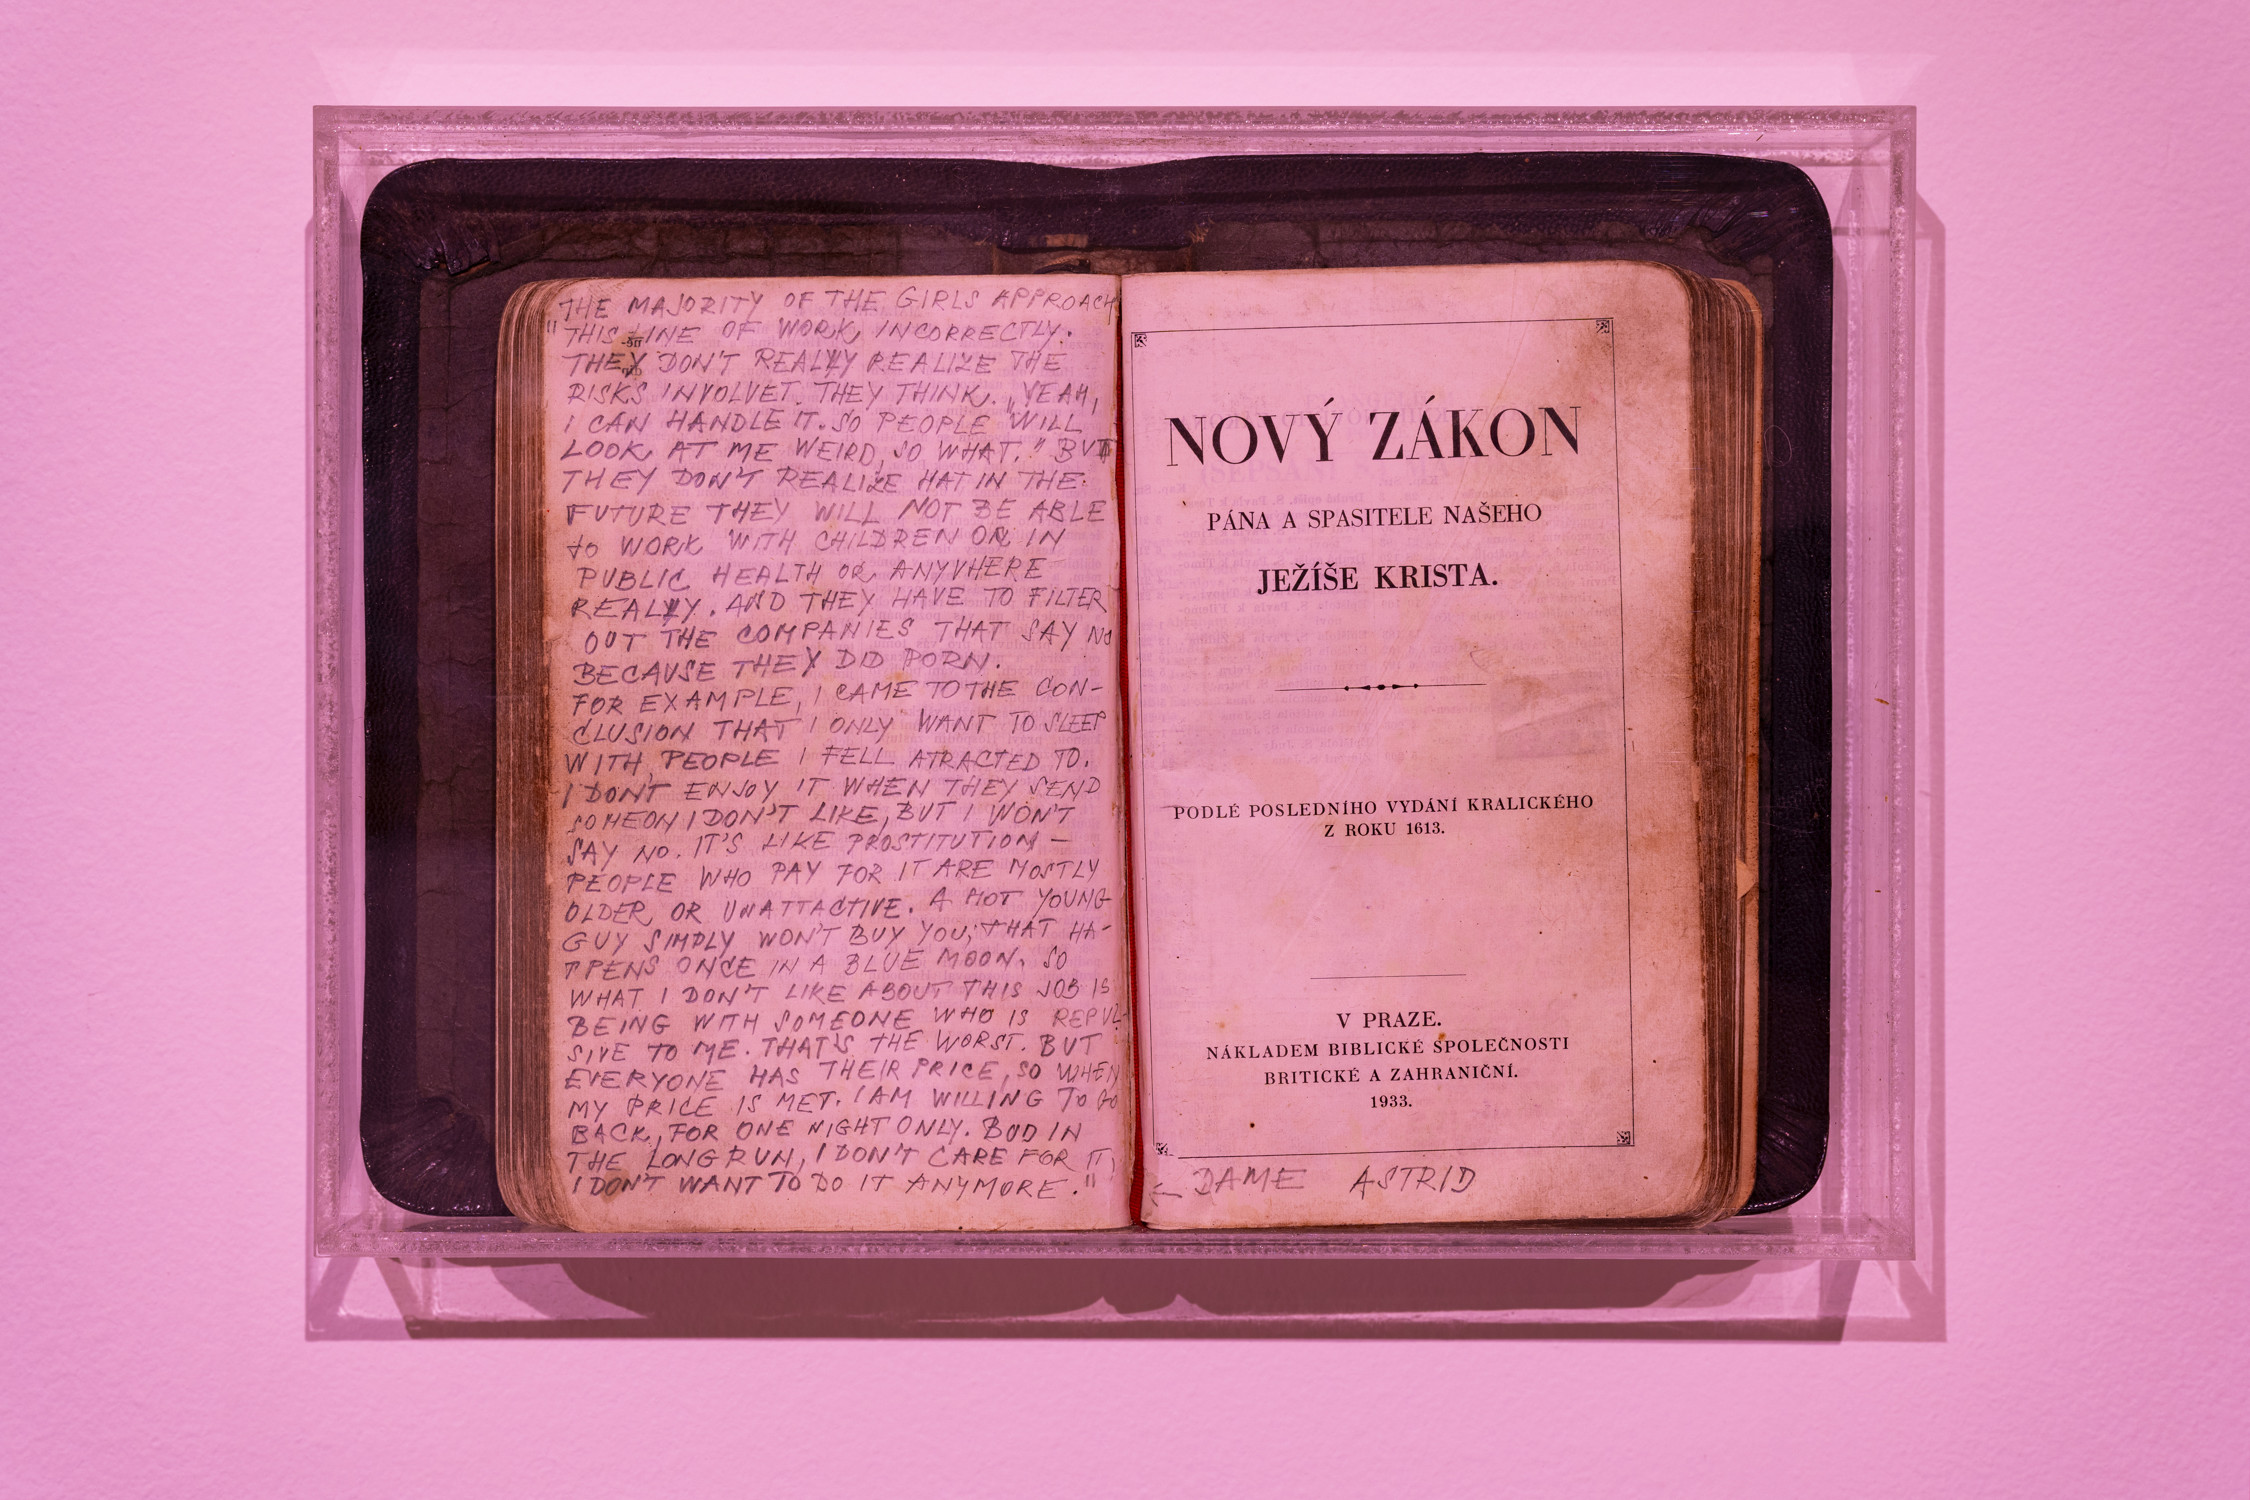 THE MAJORITY OF THE GIRLS APPROACH
"THIS LINE OF WORK INCORRECTLY.
THEY DON'T REALLY REALIZE THE
RISKS INVOLVET. THEY THINK. „YEAH,
I CAN HANDLE IT. SO PEOPLE WILL
LOOK AT ME WEIRD, SO WHAT." BUT
THEY DON'T REALIZE HAT IN THE
FUTURE THEY WILL NOT BE ABLE
to WORK WITH CHILDREN OR IN
PUBLIC HEALTH OR ANYVHERE
REALLY. AND THEY HAVE TO FILTER
OUT THE COMPANIES THAT SAY NO
BECAUSE THEY DID PORN.
FOR EXAMPLE, I CAME TO THE CON-
CLUSION THAT I ONLY WANT TO SLEEP
WITH PEOPLE I FELL ATRACTED TO.
I DON'T ENJOY IT WHEN THEY SEND
SOMEON I DON'T LIKE, BUT I WON'T
SAY NO. IT'S LIKE PROSTITUTION –
PEOPLE WHO PAY FOR IT ARE MOSTLY
OLDER OR UNATTACTIVE. A HOT YOUNG
GUY SIMPLY WON'T BUY YOU; THAT HA-
PPENS ONCE IN A BLUE MOON. SO
WHAT I DON'T LIKE ABOUT THIS JOB IS
BEING WITH SOMEONE WHO IS REPUL-
SIVE TO ME. THAT'S THE WORST. BUT
EVERYONE HAS THEIR PRICE, SO WHEN
MY PRICE IS MET. I AM WILLING TO GO
BACK, FOR ONE NIGHT ONLY. BUD IN
THE LONG RUN, I DON'T CARE FOR IT,
I DON'T WANT TO DO IT ANYMORE."
NOVÝ ZÁKON
PÁNA A SPASITELE NAŠEHO
JEŽÍŠE KRISTA.
PODLÉ POSLEDNÍHO VYDÁNÍ KRALICKÉHO
Z ROKU 1613.
V PRAZE.
NÁKLADEM BIBLICKÉ SPOLEČNOSTI
BRITICKÉ A ZAHRANIČNÍ.
1933.
← DAME ASTRID